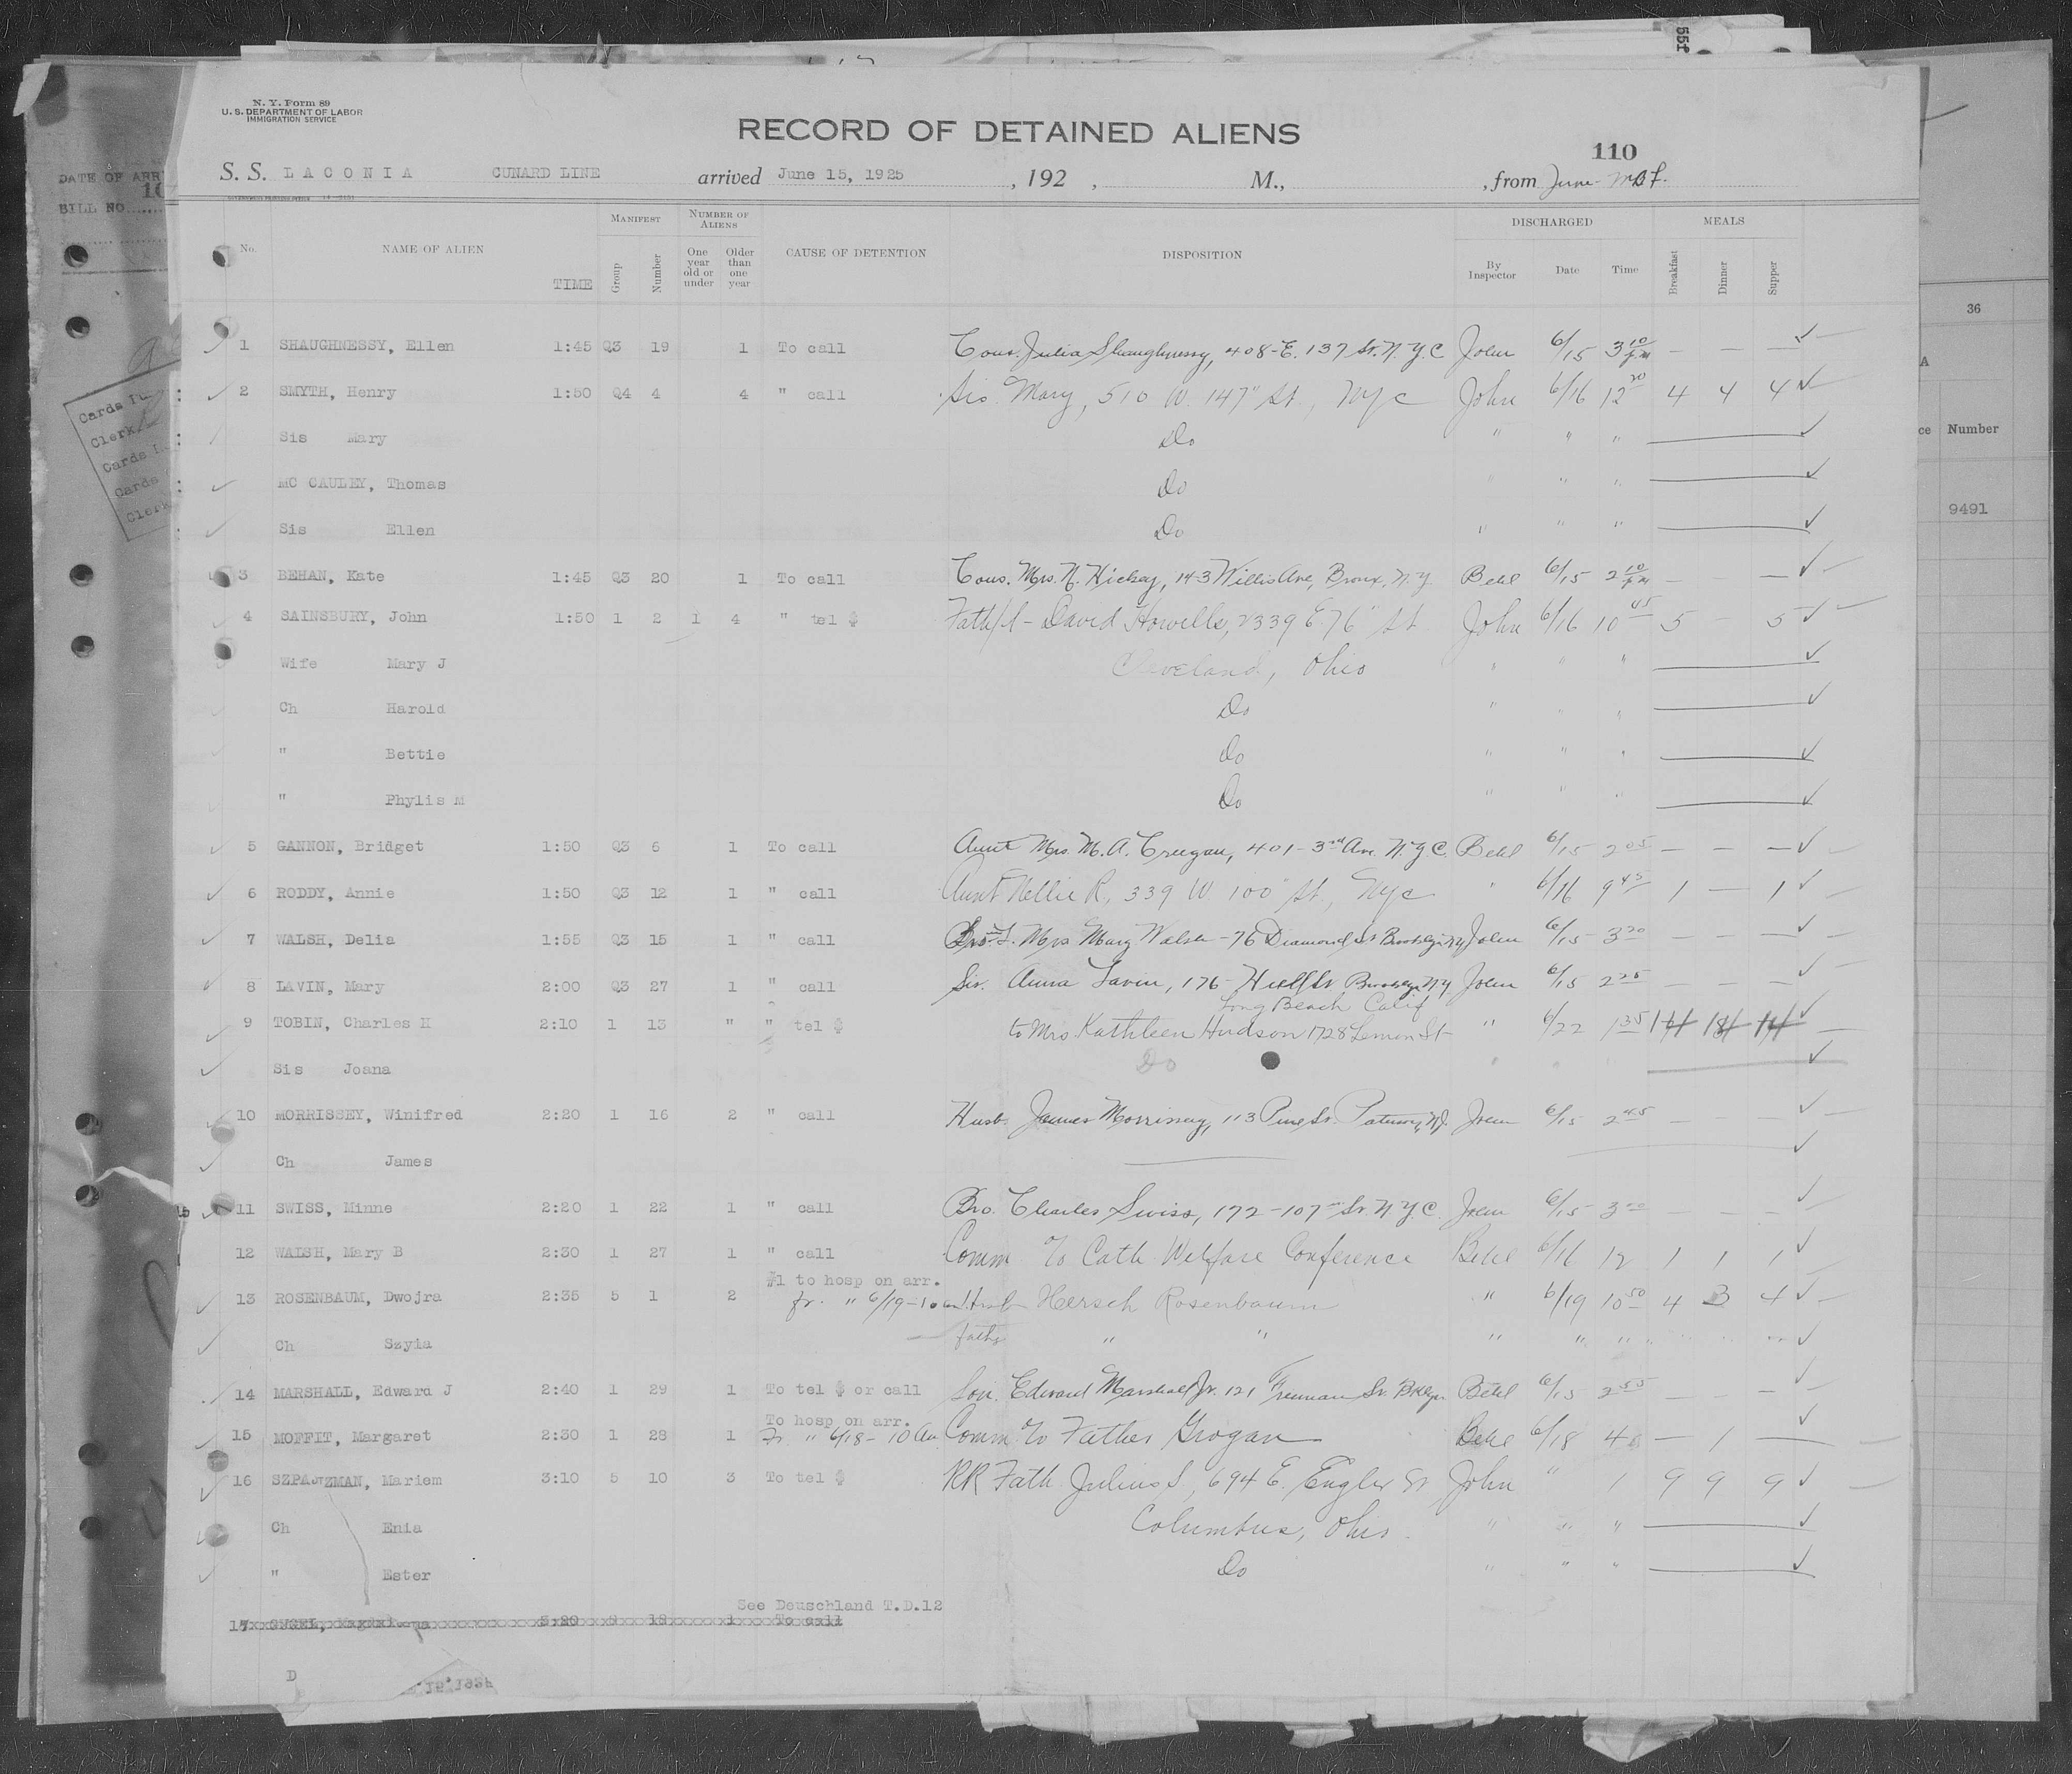 551
N. Y. Form 89
U. S. DEPARTMENT OF LABOR
IMMIGRATION SERVICE
RECORD OF DETAINED ALIENS
110
S. S. LACONIA CUNARD LINE arrived June 15, 1925 , 192 , M., , from June
No. NAME OF ALIEN TIME MANIFEST Group Number NUMBER OF ALIENS One year old or under Older than one year CAUSE OF DETENTION DISPOSITION DISCHARGED By Inspector Date Time MEALS Breakfast Dinner Supper
1 SHAUGHNESSY, Ellen 1:45 Q3 19 1 To call Cous. Julia Shaughnessy, 408-E. 137 St. N.Y.C John 6/15 3 10 pm — — —
2 SMYTH, Henry 1:50 Q4 4 4 " call Sis Mary, 510 W. 147" St., NYC John 6/16 12 20 4 4 4
Sis Mary Do " " "
MC CAULEY, Thomas Do " " "
Sis Ellen Do " " "
3 BEHAN, Kate 1:45 Q3 20 1 To call Cous. Mrs. N. Hickey, 143 Willis Ave, Bronx, N.Y. Behl 6/15 2 10 pm — —
4 SAINSBURY, John 1:50 1 2 1 4 " tel $ Fath/l - David Howells, 2339 E. 76" St John 6/16 10 45 5 – 5
Wife Mary J Cleveland, Ohio " " "
Ch Harold Do " " "
" Bettie Do " " "
" Phylis M Do " " "
5 GANNON, Bridget 1:50 Q3 6 1 To call Aunt Mrs. M. A. Creegan, 401- 3rd Ave. N.Y.C. Behl 6/15 2 05 — — —
6 RODDY, Annie 1:50 Q3 12 1 " call Aunt Nellie R, 339 W. 100" St, NYC " 6/16 9 45 1 — 1
7 WALSH, Delia 1:55 Q3 15 1 " call Mrs Mary Walsh - 76 Diamond St Brooklyn NY John 6/15 3 20 — — —
8 LAVIN, Mary 2:00 Q3 27 1 " call Sis. Anna Lavin, 176- Hull St. Brooklyn N.Y. John 6/15 2 25 — — —
Long Beach Calif
9 TOBIN, Charles H 2:10 1 13 " " tel $ to Mrs Kathleen Hudson 1728 Lemon St " 6/22 1 35
Sis Joana Do " "
10 MORRISSEY, Winifred 2:20 1 16 2 " call Husb. James Morrissey, 113 Pine St. Paterson, N.J. John 6/15 2 45 — — —
Ch James
11 SWISS, Minne 2:20 1 22 1 " call Bro. Charles Swiss, 172-107th St. N.Y.C. John 6/15 3 00 — — —
12 WALSH, Mary B 2:30 1 27 1 " call Comm. c/o Cath Welfare Conference Behl 6/16 12 1 1 1
#1 to hosp on arr.
13 ROSENBAUM, Dwojra 2:35 5 1 2 fr. " 6/19-10 am Husb Hersch Rosenbaum " 6/19 10 50 4 3 4
Ch Szyla Father " " " " "
14 MARSHALL, Edward J 2:40 1 29 1 To tel $ or call Son. Edward Marshall Jr. 121 Freeman St. Bklyn Behl 6/15 2 55 —
To hosp on arr.
15 MOFFIT, Margaret 2:30 1 28 1 Fr " 6/18- 10 Am Comm c/o Father Grogan Behl 6/18 4 — 1 —
16 SZPAJZMAN, Mariem 3:10 5 10 3 To tel $ RR Fath Julius S, 694 E. Engler St John " 1 9 9 9
Ch Enia Columbus, Ohio. " " "
" Ester Do " " "
See Deuschland T.D.12
17 3:20 18 1 To call
D
DATE OF ARR
BILL NO.
Clerk
Cards
Cards
Clerk
36
A
ce Number
9491